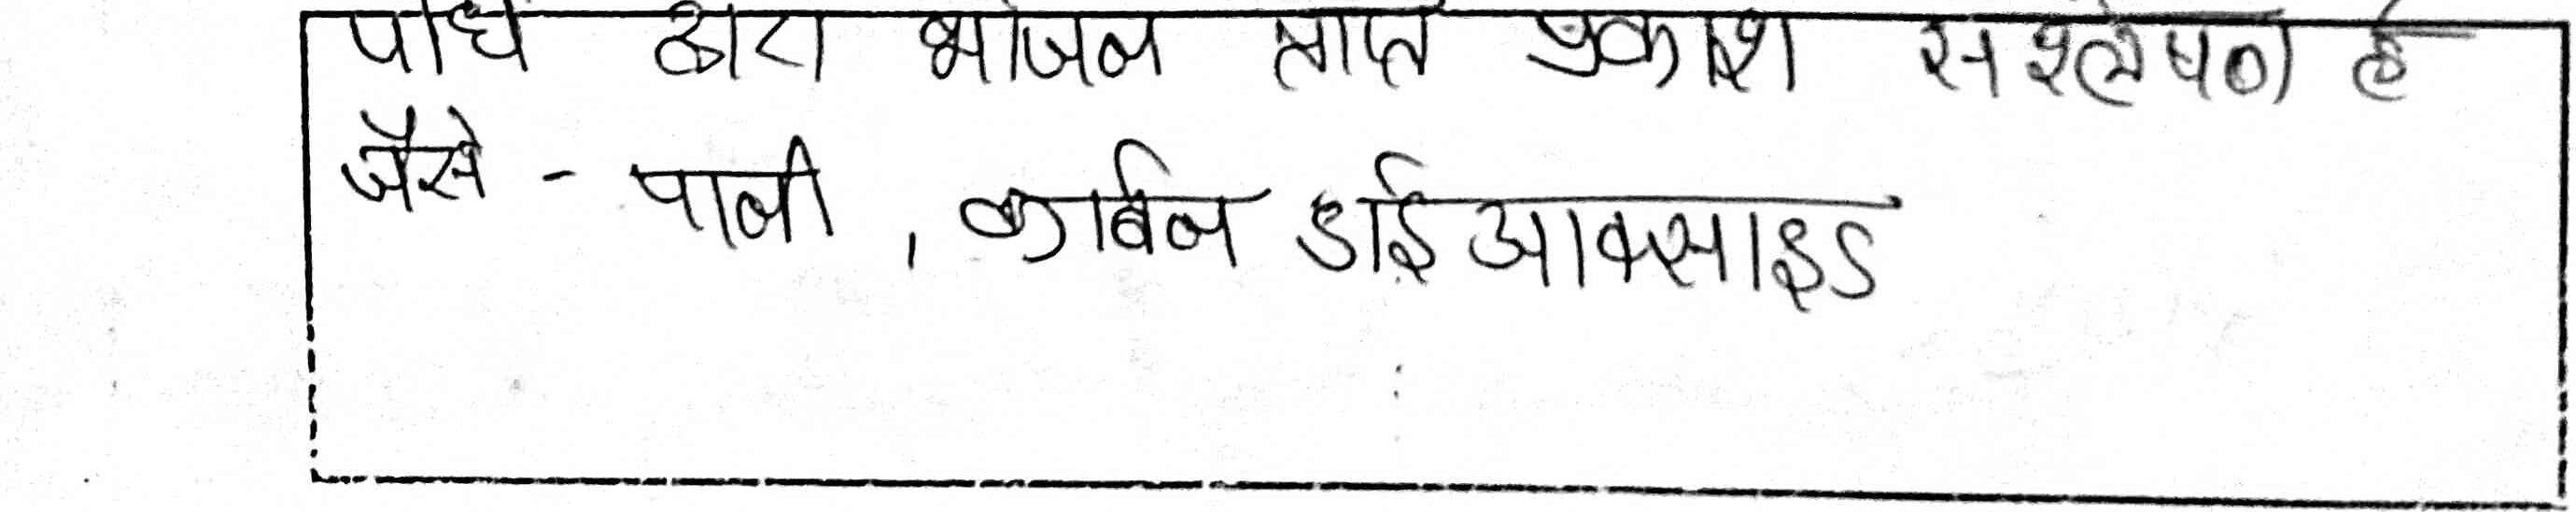 पौधे द्वारा भोजन प्राप्त प्रकाश संश्लेषण है
जैसे - पानी , कार्बन डाई आक्साइड